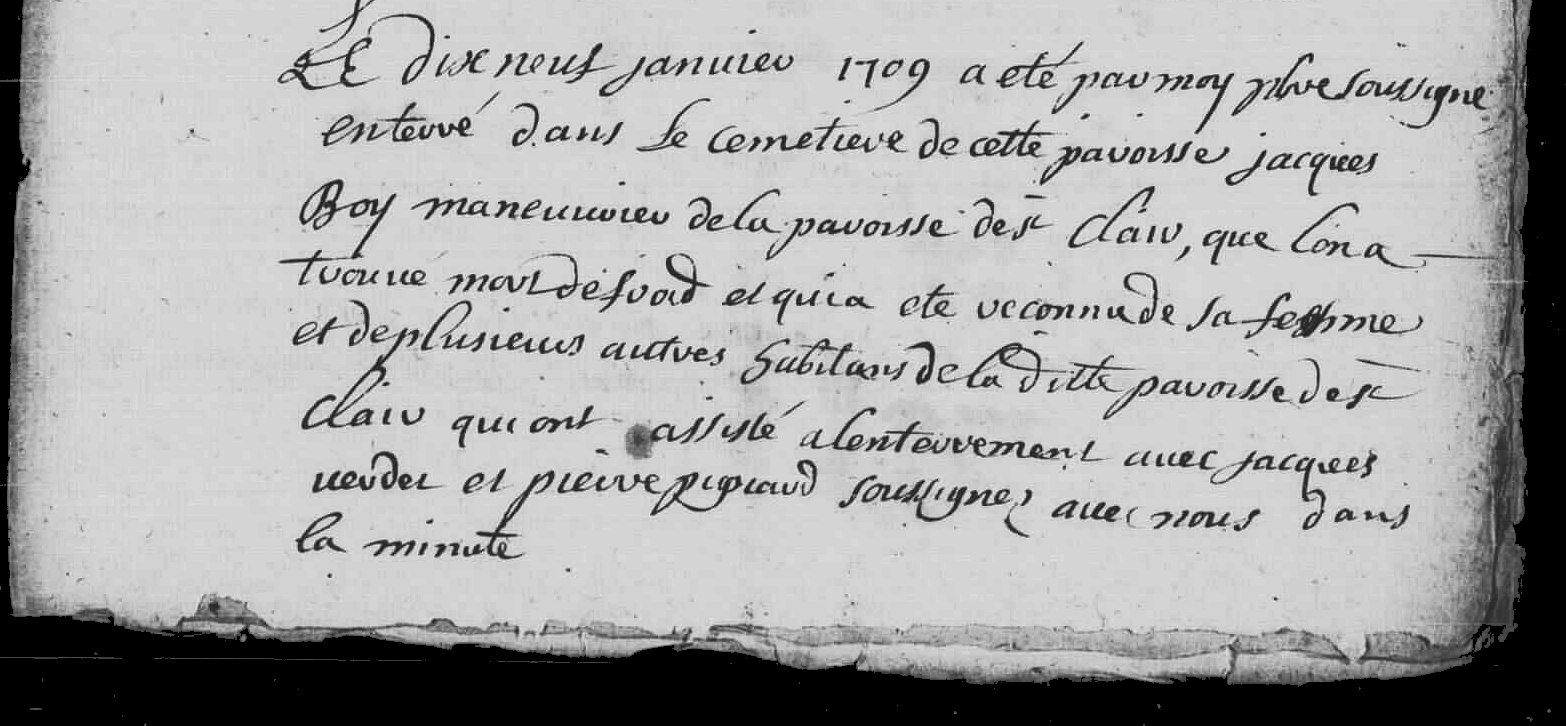 LE dix neuf janvier 1709 a eté par moy pbre soussigné
enterré dans Le cemetiere de cette paroisse jacques
Boy maneuvrier de la paroisse de st Clair, que l'on a
trouvé mort de froid et qui a eté reconnu de sa femme
et de plusieurs autres habitans de la ditte paroisse de st
Clair qui ont assisté a lenterrement avec jacques
verdet et pierre pigniard soussignez avec nous dans
la minute